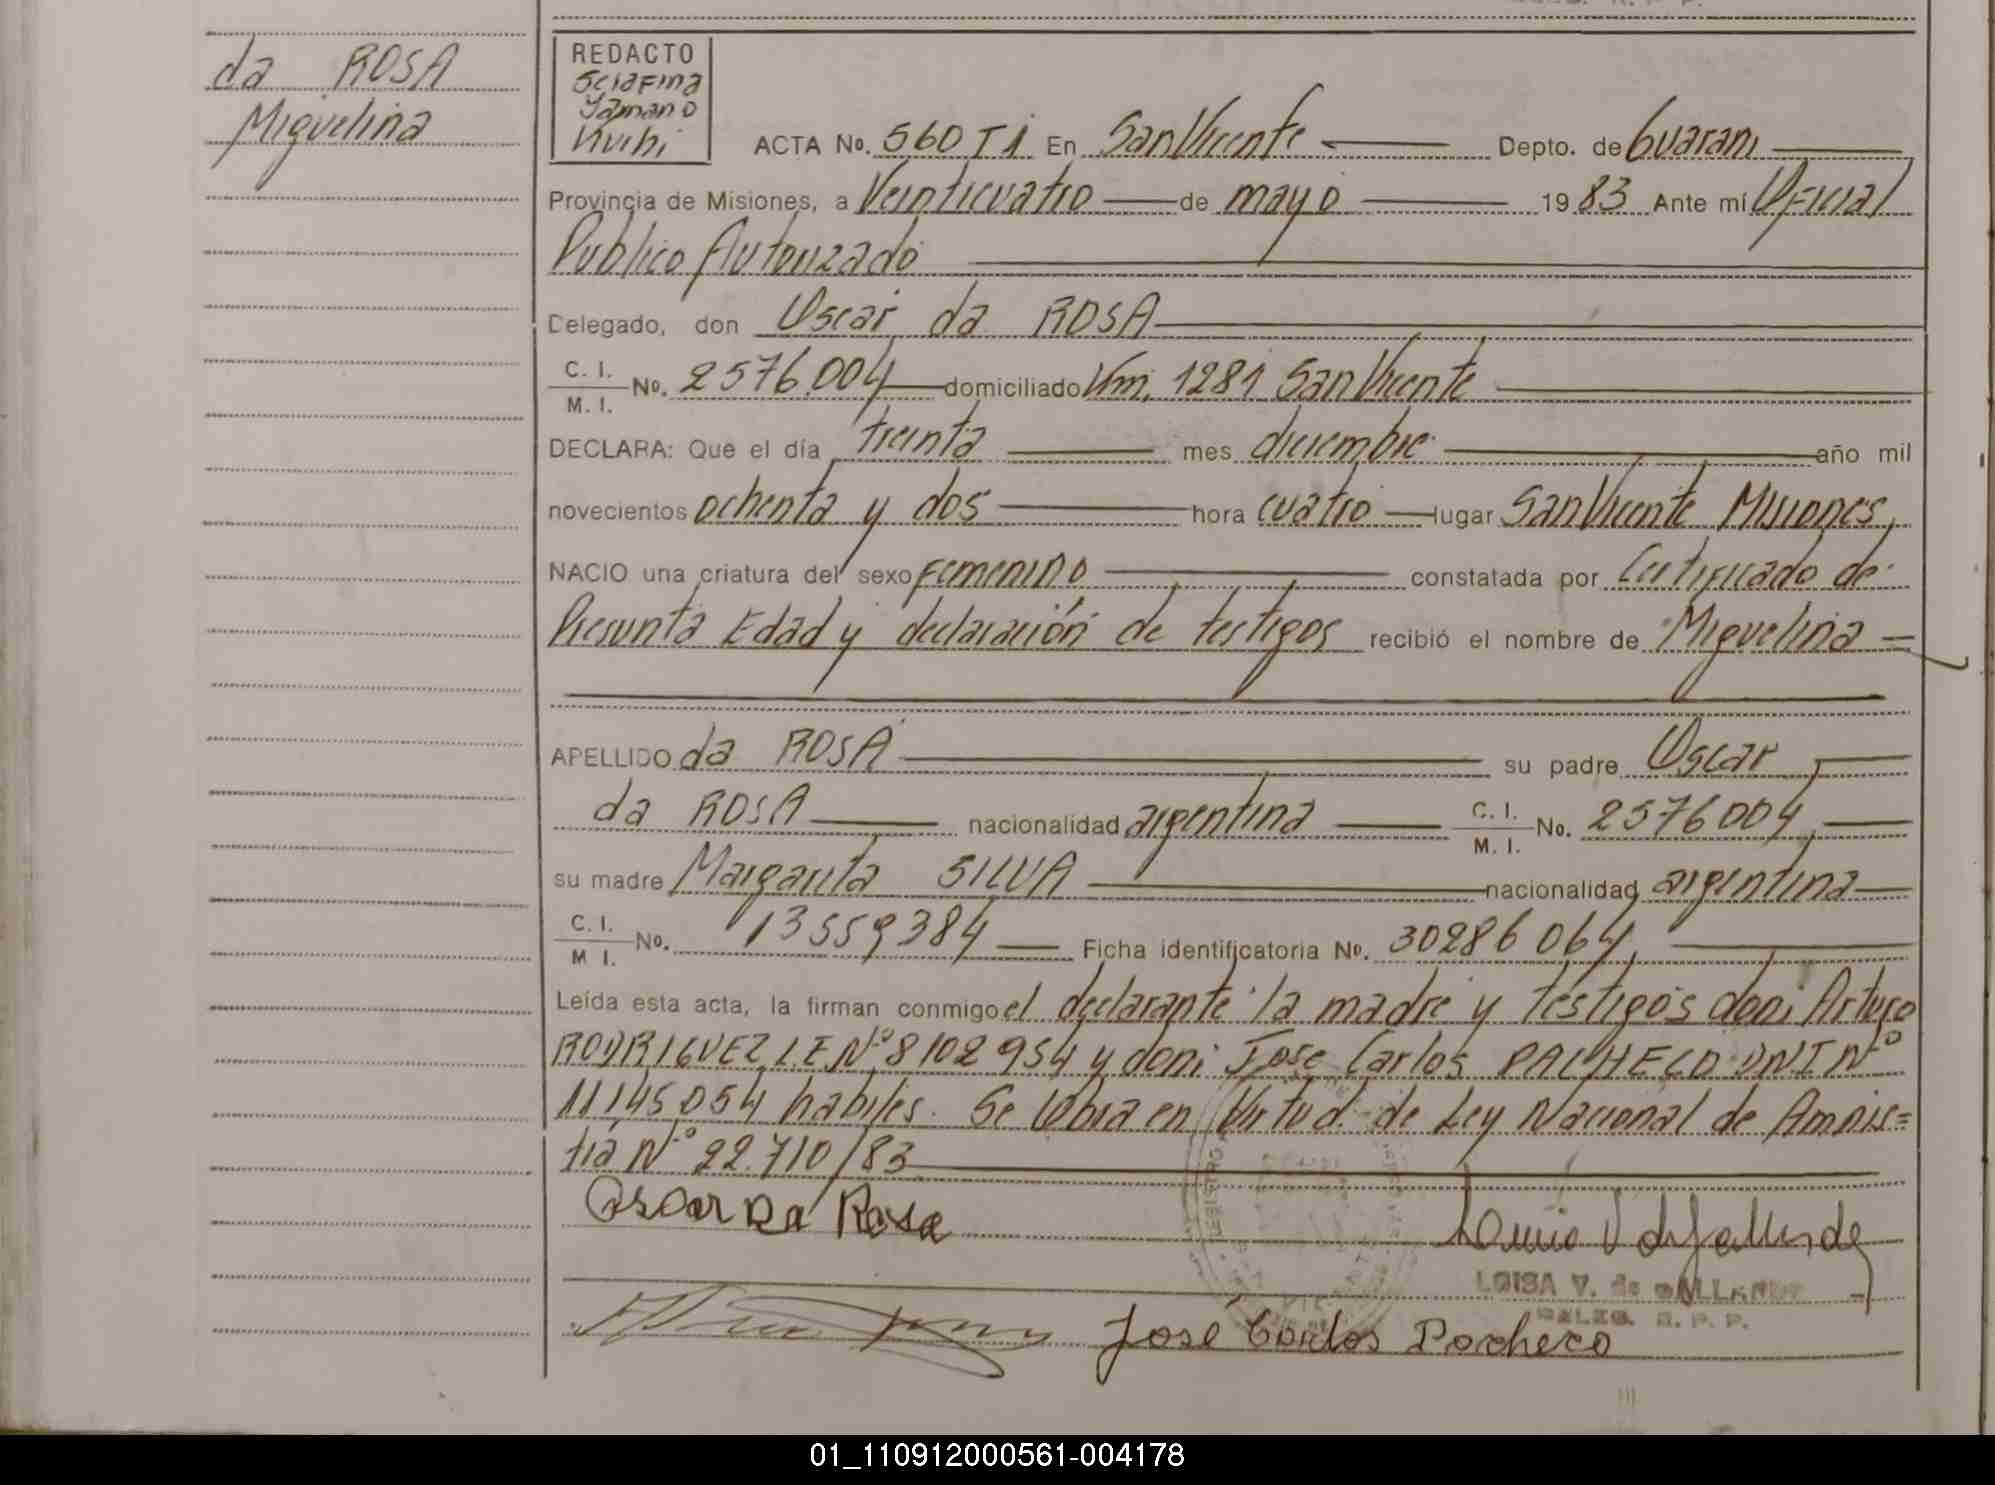 da ROSA
Miguelina
REDACTO
Serafina
Yamano
Kuihi
ACTA No. 560 T1 En San Vicente Depto. de Guarani
Provincia de Misiones, a Veinticuatro de mayo 1983 Ante mí Oficial
Publico Autorizado
Delegado, don Oscar da ROSA
C. I.
M. I. No. 2576.004 domiciliado Km. 1281 San Vicente
DECLARA: Que el día treinta mes diciembre año mil
novecientos ochenta y dos hora cuatro lugar San Vicente Misiones
NACIO una criatura del sexo Femenino constatada por Certificado de
Presunta Edad y declaración de testigos recibió el nombre de Miguelina =
APELLIDO da ROSA su padre Oscar
da ROSA nacionalidad argentina C. I.
M. I. No. 2576004
su madre Margarita SILVA nacionalidad argentina
C. I.
M I. No. 13559384 Ficha identificatoria No. 30286064
Leída esta acta, la firman conmigo el declarante la madre y testigos don: Arturo
RODRIGUEZ L.E. Nº 8102954 y don: Jose Carlos PACHECO DNI Nº
11145054 habiles. Se labra en Virtud de Ley Nacional de Amnis=
tia Nº 22.710/83
Oscar Da Rosa
LUISA V. de GALLARDO
DELEG. R. P. P.
José Carlos Pacheco
01_110912000561-004178